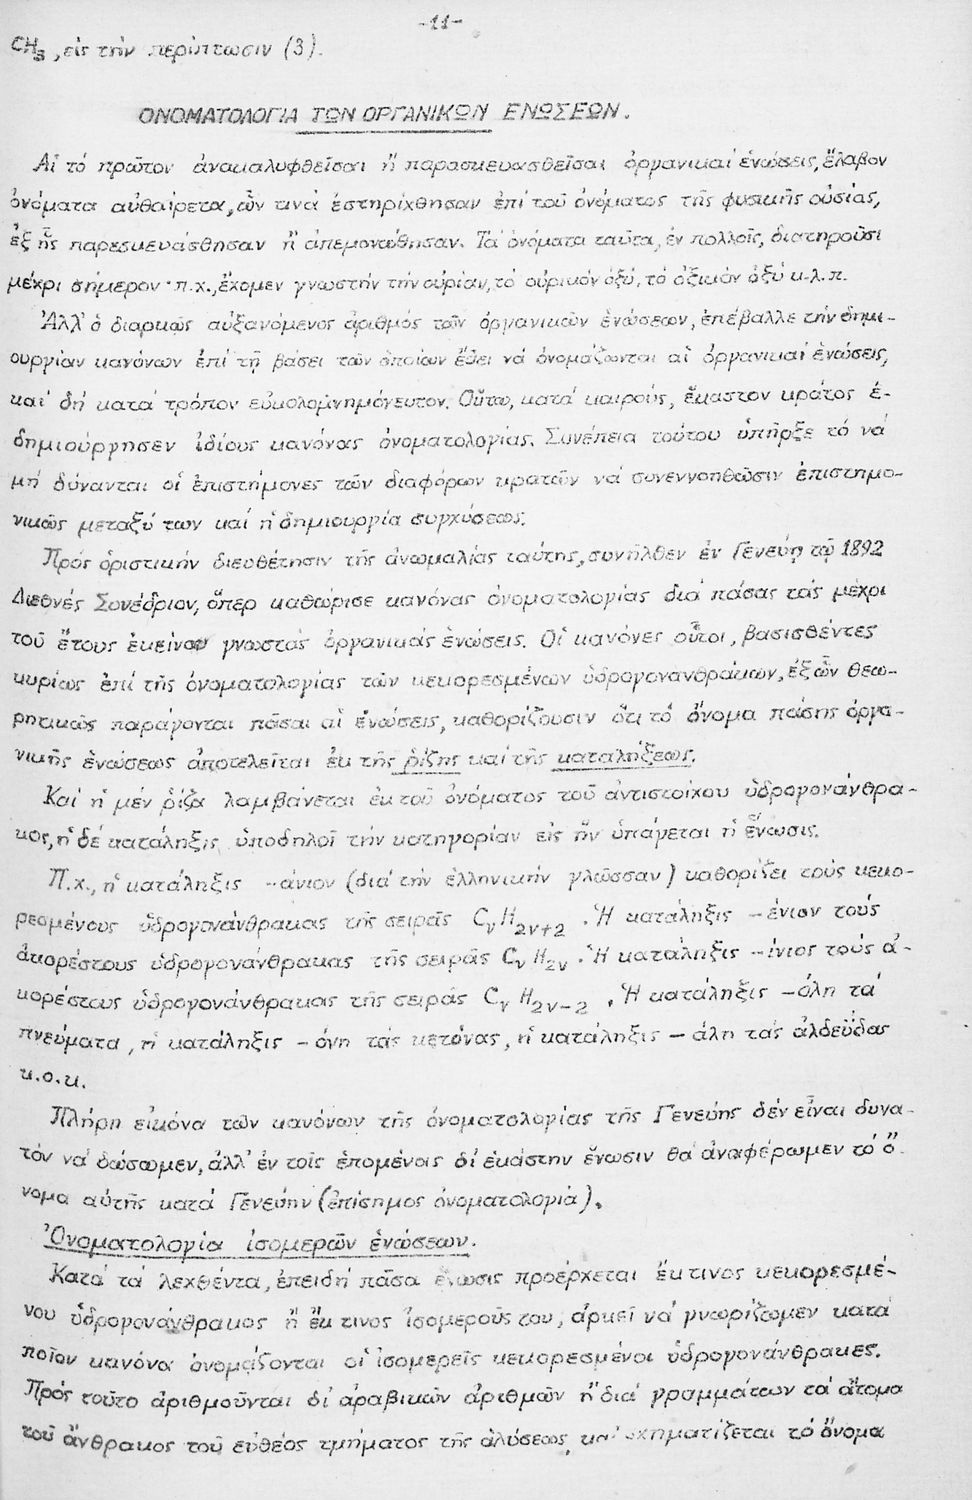 -11-
CH3, εἰς τήν περίπτωσιν (3).
ΟΝΟΜΑΤΟΛΟΓΙΑ ΤΩΝ ΟΡΓΑΝΙΚΩΝ ΕΝΩΣΕΩΝ.
Αἱ τό πρῶτον ἀνακαλυφθεῖσαι ἤ παρασκευασθεῖσαι ὀργανικαί ἑνώσεις, ἔλαβον
ὀνόματα αὐθαίρετα, ὧν τινά ἐστηρίχθησαν ἐπί τοῦ ὀνόματος τῆς φυσικῆς οὐσίας,
ἐξ ἧς παρεσκευάσθησαν ἤ ἀπεμονώθησαν. Τά ὀνόματα ταῦτα, ἐν πολλοῖς, διατηροῦσι
μέχρι σήμερον· π.χ., ἔχομεν γνωστήν τήν οὐρίαν, τό οὐρικόν ὀξύ, τό ὀξικόν ὀξύ κ.λ.π.
Ἀλλ' ὁ διαρκῶς αὐξανόμενος ἀριθμός τῶν ὀργανικῶν ἑνώσεων, ἐπέβαλλε τήν δημι-
ουργίαν κανόνων ἐπί τῇ βάσει τῶν ὁποίων ἔδει νά ὀνομάζωνται αἱ ὀργανικαί ἑνώσεις,
καί δή κατά τρόπον εὐκολομνημόνευτον. Οὕτω, κατά καιρούς, ἕκαστον κράτος ἐ-
δημιούργησεν ἰδίους κανόνας ὀνοματολογίας. Συνέπεια τούτου ὑπῆρξε τό νά
μή δύνανται οἱ ἐπιστήμονες τῶν διαφόρων κρατῶν νά συνεννοηθῶσιν ἐπιστημο-
νικῶς μεταξύ των καί ἡ δημιουργία συγχύσεως.
Πρός ὁριστικήν διευθέτησιν τῆς ἀνωμαλίας ταύτης, συνῆλθεν ἐν Γενεύῃ τῷ 1892
Διεθνές Συνέδριον, ὅπερ καθώρισε κανόνας ὀνοματολογίας διά πάσας τάς μέχρι
τοῦ ἔτους ἐκείνου γνωστάς ὀργανικάς ἑνώσεις. Οἱ κανόνες οὗτοι, βασισθέντες
κυρίως ἐπί τῆς ὀνοματολογίας τῶν κεκορεσμένων ὑδρογονανθράκων, ἐξ ὧν θεω-
ρητικῶς παράγονται πᾶσαι αἱ ἑνώσεις, καθορίζουσιν ὅτι τό ὄνομα πάσης ὀργα-
νικῆς ἑνώσεως ἀποτελεῖται ἐκ τῆς ρίζης καί τῆς καταλήξεως.
Καί ἡ μέν ρίζα λαμβάνεται ἐκ τοῦ ὀνόματος τοῦ ἀντιστοίχου ὑδρογονάνθρα-
κος, ἡ δέ κατάληξις ὑποδηλοῖ τήν κατηγορίαν εἰς ἥν ὑπάγεται ἡ ἕνωσις.
Π.χ., ἡ κατάληξις -άνιον (διά τήν ἑλληνικήν γλῶσσαν) καθορίζει τούς κεκο-
ρεσμένους ὑδρογονάνθρακας τῆς σειρᾶς CνH2ν+2. Ἡ κατάληξις -ένιον τούς
ἀκορέστους ὑδρογονάνθρακας τῆς σειρᾶς CνH2ν. Ἡ κατάληξις -ίνιον τούς ἀ-
κορέστους ὑδρογονάνθρακας τῆς σειρᾶς CνH2ν-2. Ἡ κατάληξις -όλη τά
πνεύματα, ἡ κατάληξις -όνη τάς κετόνας, ἡ κατάληξις -άλη τάς ἀλδεΰδας
κ.ο.κ.
Πλήρη εἰκόνα τῶν κανόνων τῆς ὀνοματολογίας τῆς Γενεύης δέν εἶναι δυνα-
τόν νά δώσωμεν, ἀλλ' ἐν τοῖς ἑπομένοις δι' ἑκάστην ἕνωσιν θά ἀναφέρωμεν τό ὄ-
νομα αὐτῆς κατά Γενεύην (ἐπίσημος ὀνοματολογία).
Ὀνοματολογία ἰσομερῶν ἑνώσεων.
Κατά τά λεχθέντα, ἐπειδή πᾶσα ἕνωσις προέρχεται ἔκ τινος κεκορεσμέ-
νου ὑδρογονάνθρακος ἤ ἔκ τινος ἰσομεροῦς του, ἀρκεῖ νά γνωρίζωμεν κατά
ποῖον κανόνα ὀνομάζονται οἱ ἰσομερεῖς κεκορεσμένοι ὑδρογονάνθρακες.
Πρός τοῦτο ἀριθμοῦνται δι' ἀραβικῶν ἀριθμῶν ἤ διά γραμμάτων τά ἄτομα
τοῦ ἄνθρακος τοῦ εὐθέος τμήματος τῆς ἁλύσεως καί σχηματίζεται τό ὄνομα